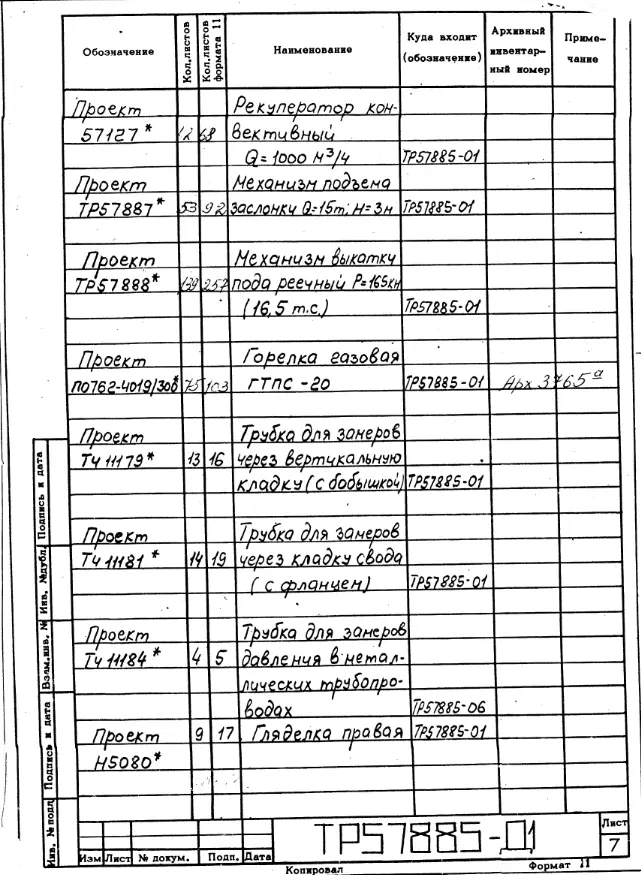 Обозначение Кол.листов Кол.листов формата 11 Наименование Куда входит (обозначение) Архивный инвентарный номер Примечание
Проект Рекуператор кон-
57127* 12 68 вективный
Q=1000 м³/ч ТР57885-01
Проект Механизм подъема
ТР57887* 53 92 заслонки Q=15т; Н=3м ТР57885-01
Проект Механизм выкатки
ТР57888* 139 257 пода реечный Р=165кн
(16,5 т.с.) ТР57885-01
Проект Горелка газовая
ПО762-4019/300* 75 103 ГТПС-20 ТР57885-01 Арх 3765а
Проект Трубка для замеров
ТЧ 11179* 13 16 через вертикальную
кладку (с бобышкой) ТР57885-01
Проект Трубка для замеров
ТЧ 11181* 14 19 через кладку свода
(с фланцем) ТР57885-01
Проект Трубка для замеров
ТЧ 11184* 4 5 давления в метал-
лических трубопро-
водах ТР57885-06
Проект 9 17 Гляделка правая ТР57885-01
Н5080*
Инв. № подл Подпись и дата Взам.инв. № Инв. №дубл. Подпись и дата
ТР57885-Д1
Лист
7
Изм Лист № докум. Подп. Дата
Копировал Формат 11